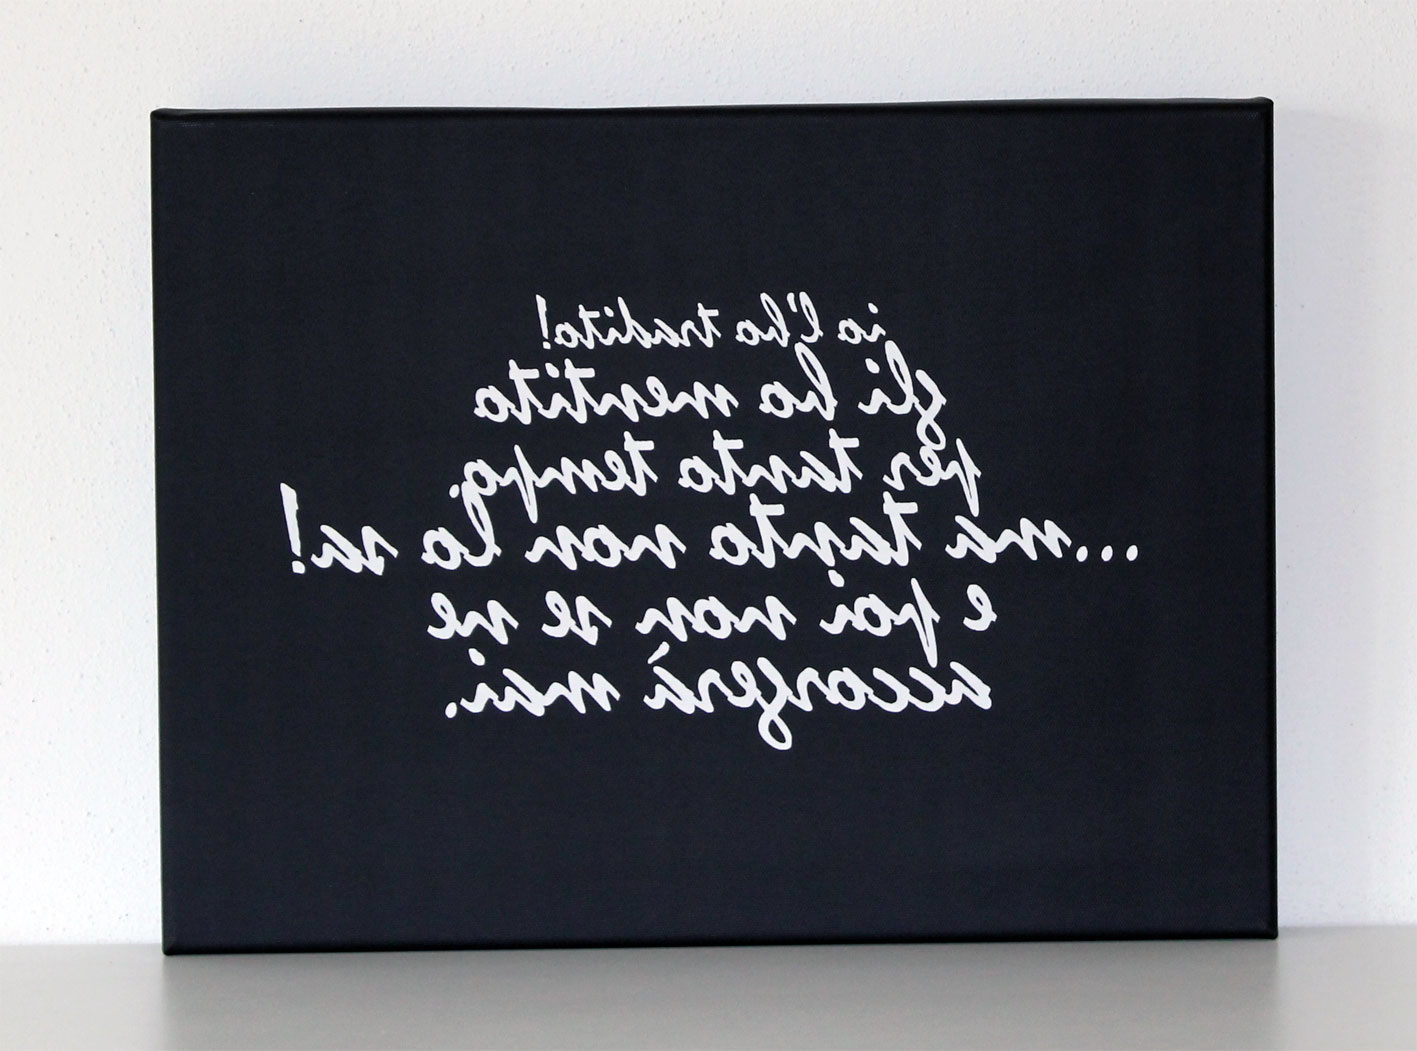 io l'ho tradito!
gli ho mentito
per tanto tempo.
...ma tanto non lo sa!
e poi non se ne
accorgerà mai.